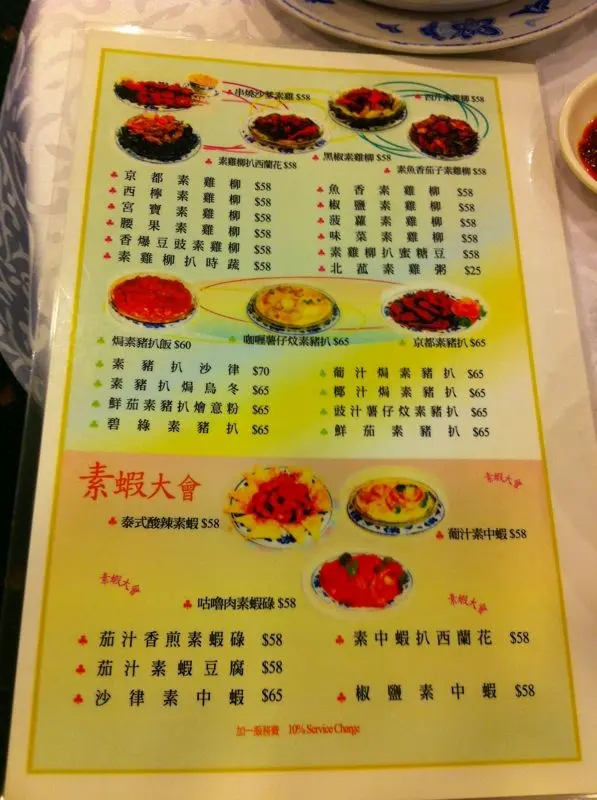 串燒沙爹素雞 $58
西汁素雞柳 $58
素雞柳扒西蘭花 $58
黑椒素雞柳 $58
素魚香茄子素雞柳 $58
京都素雞柳 $58
西檸素雞柳 $58
宮寶素雞柳 $58
腰果素雞柳 $58
香爆豆豉素雞柳 $58
素雞柳扒時蔬 $58
魚香素雞柳 $58
椒鹽素雞柳 $58
菠蘿素雞柳 $58
味菜素雞柳 $58
素雞柳扒蜜糖豆 $58
北菰素雞粥 $25
焗素豬扒飯 $60
咖喱薯仔炆素豬扒 $65
京都素豬扒 $65
素豬扒沙律 $70
素豬扒焗烏冬 $65
鮮茄素豬扒燴意粉 $65
碧綠素豬扒 $65
葡汁焗素豬扒 $65
椰汁焗素豬扒 $65
豉汁薯仔炆素豬扒 $65
鮮茄素豬扒 $65
素蝦大會
素蝦大會
泰式酸辣素蝦 $58
葡汁素中蝦 $58
素蝦大會
咕嚕肉素蝦碌 $58
素蝦大會
茄汁香煎素蝦碌 $58
茄汁素蝦豆腐 $58
沙律素中蝦 $65
素中蝦扒西蘭花 $58
椒鹽素中蝦 $58
加一服務費 10% Service Charge